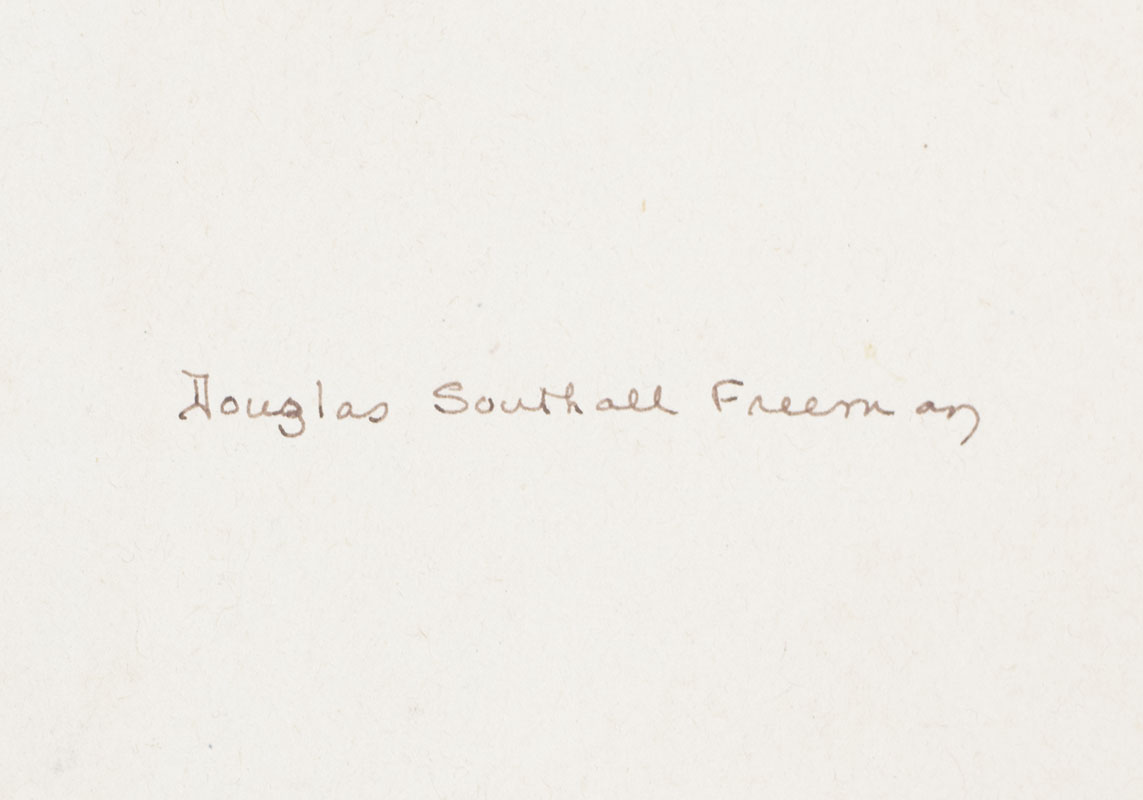 Douglas Southall Freeman